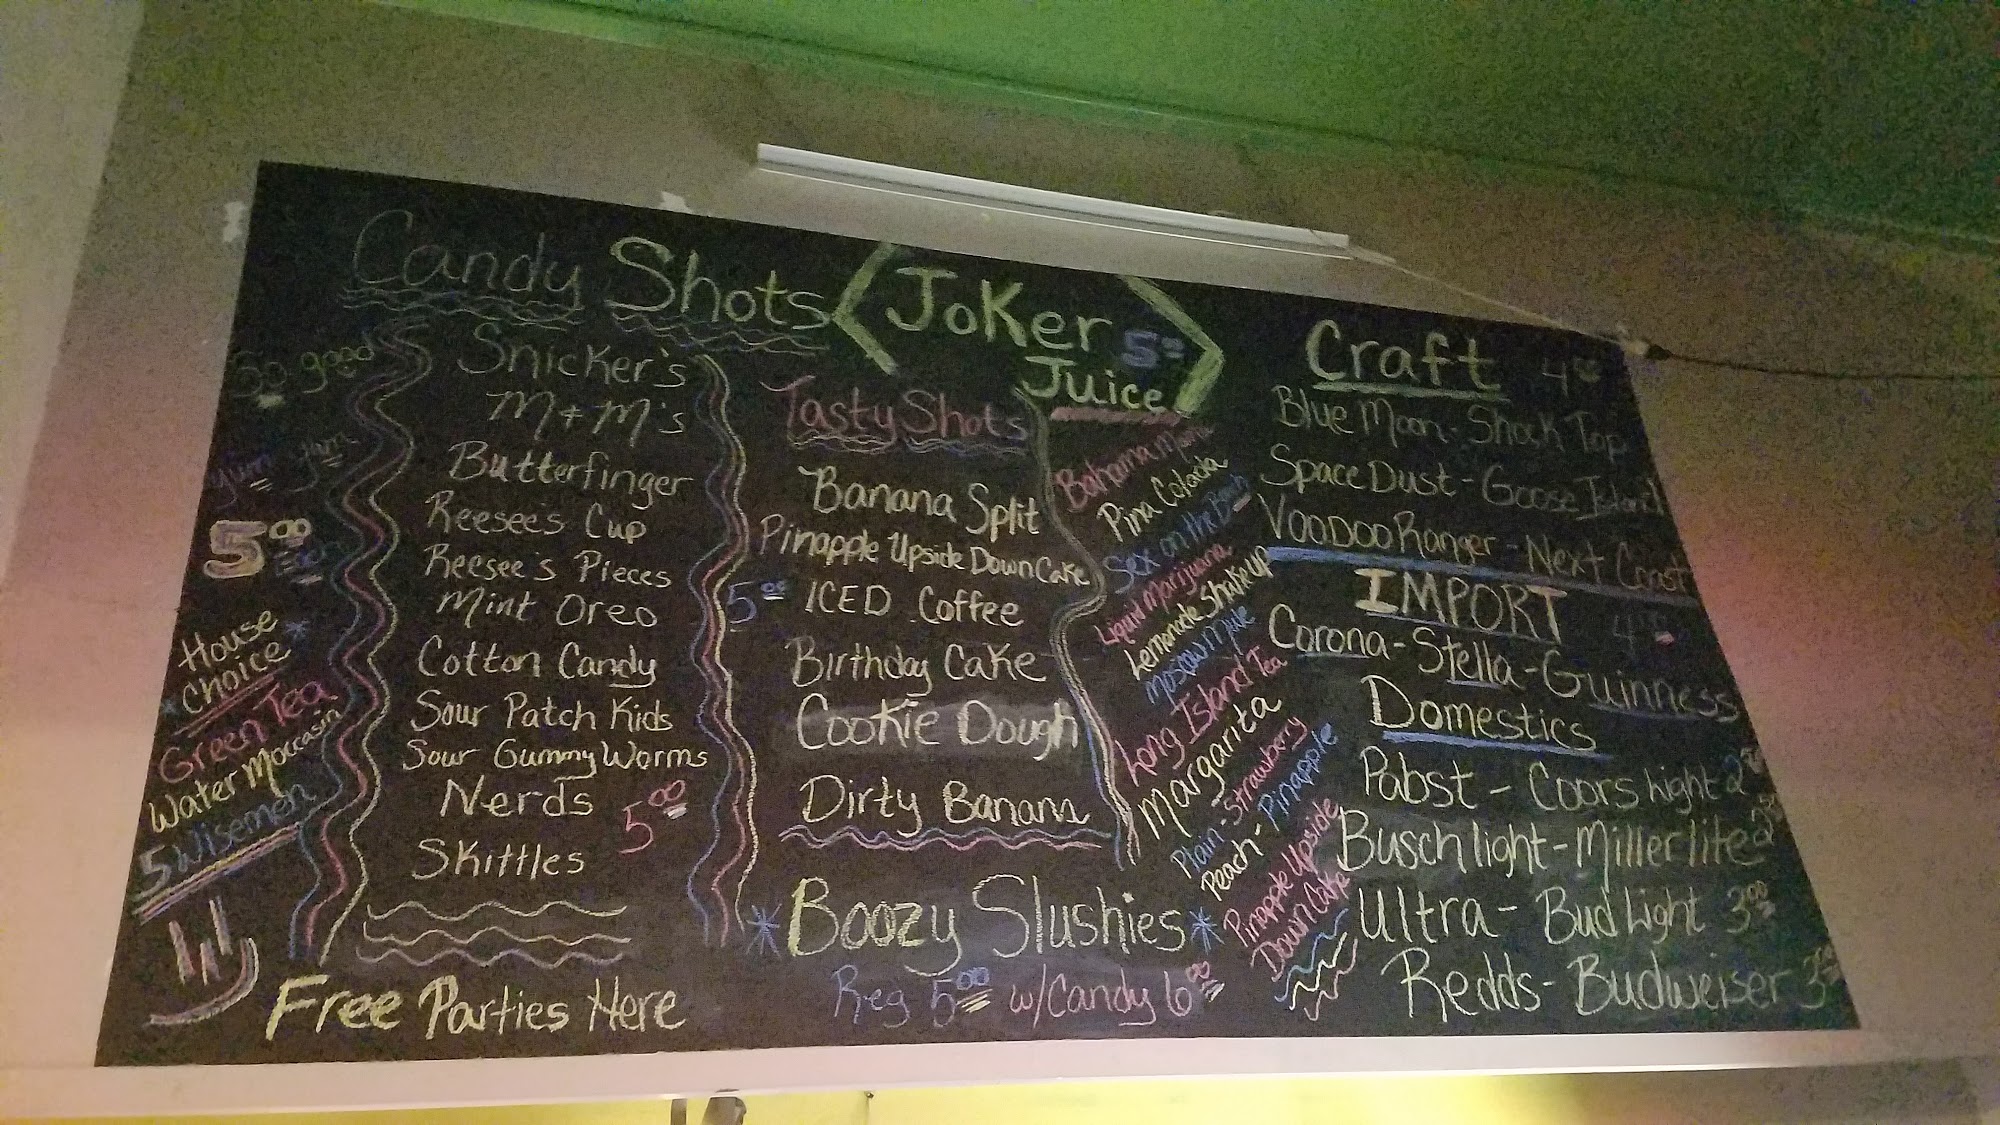 Candy Shots
So good
yum yum
5.00 each
House
Choice
Green Tea
Water Moccasin
5 Wisemen
Snicker's
M + M's
Butterfinger
Reesee's Cup
Reesee's Pieces
Mint Oreo
Cotton Candy
Sour Patch Kids
Sour Gummy Worms
Nerds
5.00
Skittles
Free Parties Here
Joker
Juice
5.00
Tasty Shots
Banana Split
Pinapple Upside Down Cake
5.00
ICED Coffee
Birthday Cake
Cookie Dough
Dirty Banana
Boozy Slushies
Reg 5.00 w/Candy 6.00
Bahama Mama
Pina Colada
Sex on the Beach
Liquid Marijuana
Lemonade Shake up
Moscow Mule
Long Island Tea
Margarita
Plain - Strawberry
Peach - Pinapple
Pinapple Upside
Down Cake
Craft 4.00
Blue Moon - Shock Top
Space Dust - Goose Island
VOODOO Ranger - Next Coast
IMPORT 4.00
Corona - Stella - Guinness
Domestics
Pabst - Coors Light 2.50
Busch light - Miller lite 2.50
Ultra - Bud Light 3.00
Redds - Budweiser 3.00